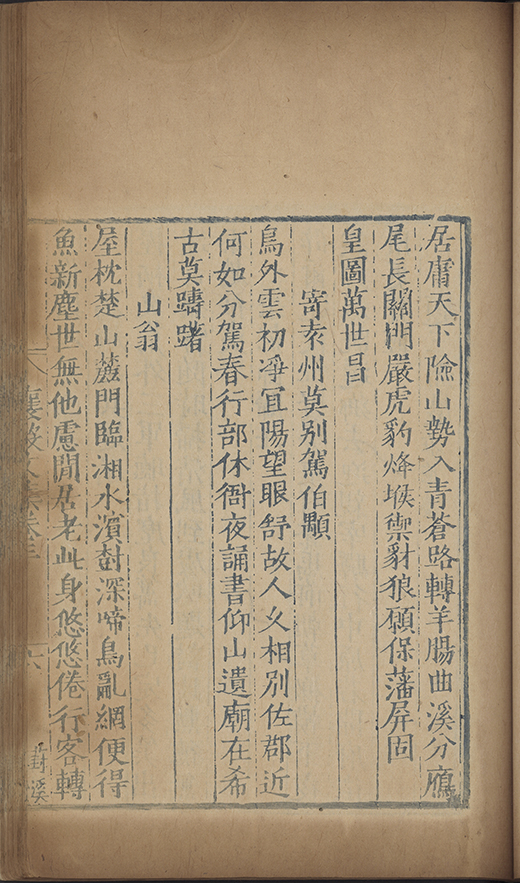 居庸天下險山勢入青蒼路轉羊腸曲溪分鴈
尾長關門嚴虎豹烽堠禦豺狼願保藩屏固
皇圖萬世昌
寄袁州莫别駕伯顒
鳥外雲初凈宜陽望眼舒故人乂相别佐郡近
何如分駕春行部休衙夜誦書仰山遺廟在希
古莫躊躇
山翁
屋枕楚山麓門臨湘水濱樹深啼鳥亂網便得
魚新塵世無他慮閒居老此身悠悠倦行客轉
襄敏文集卷三
六